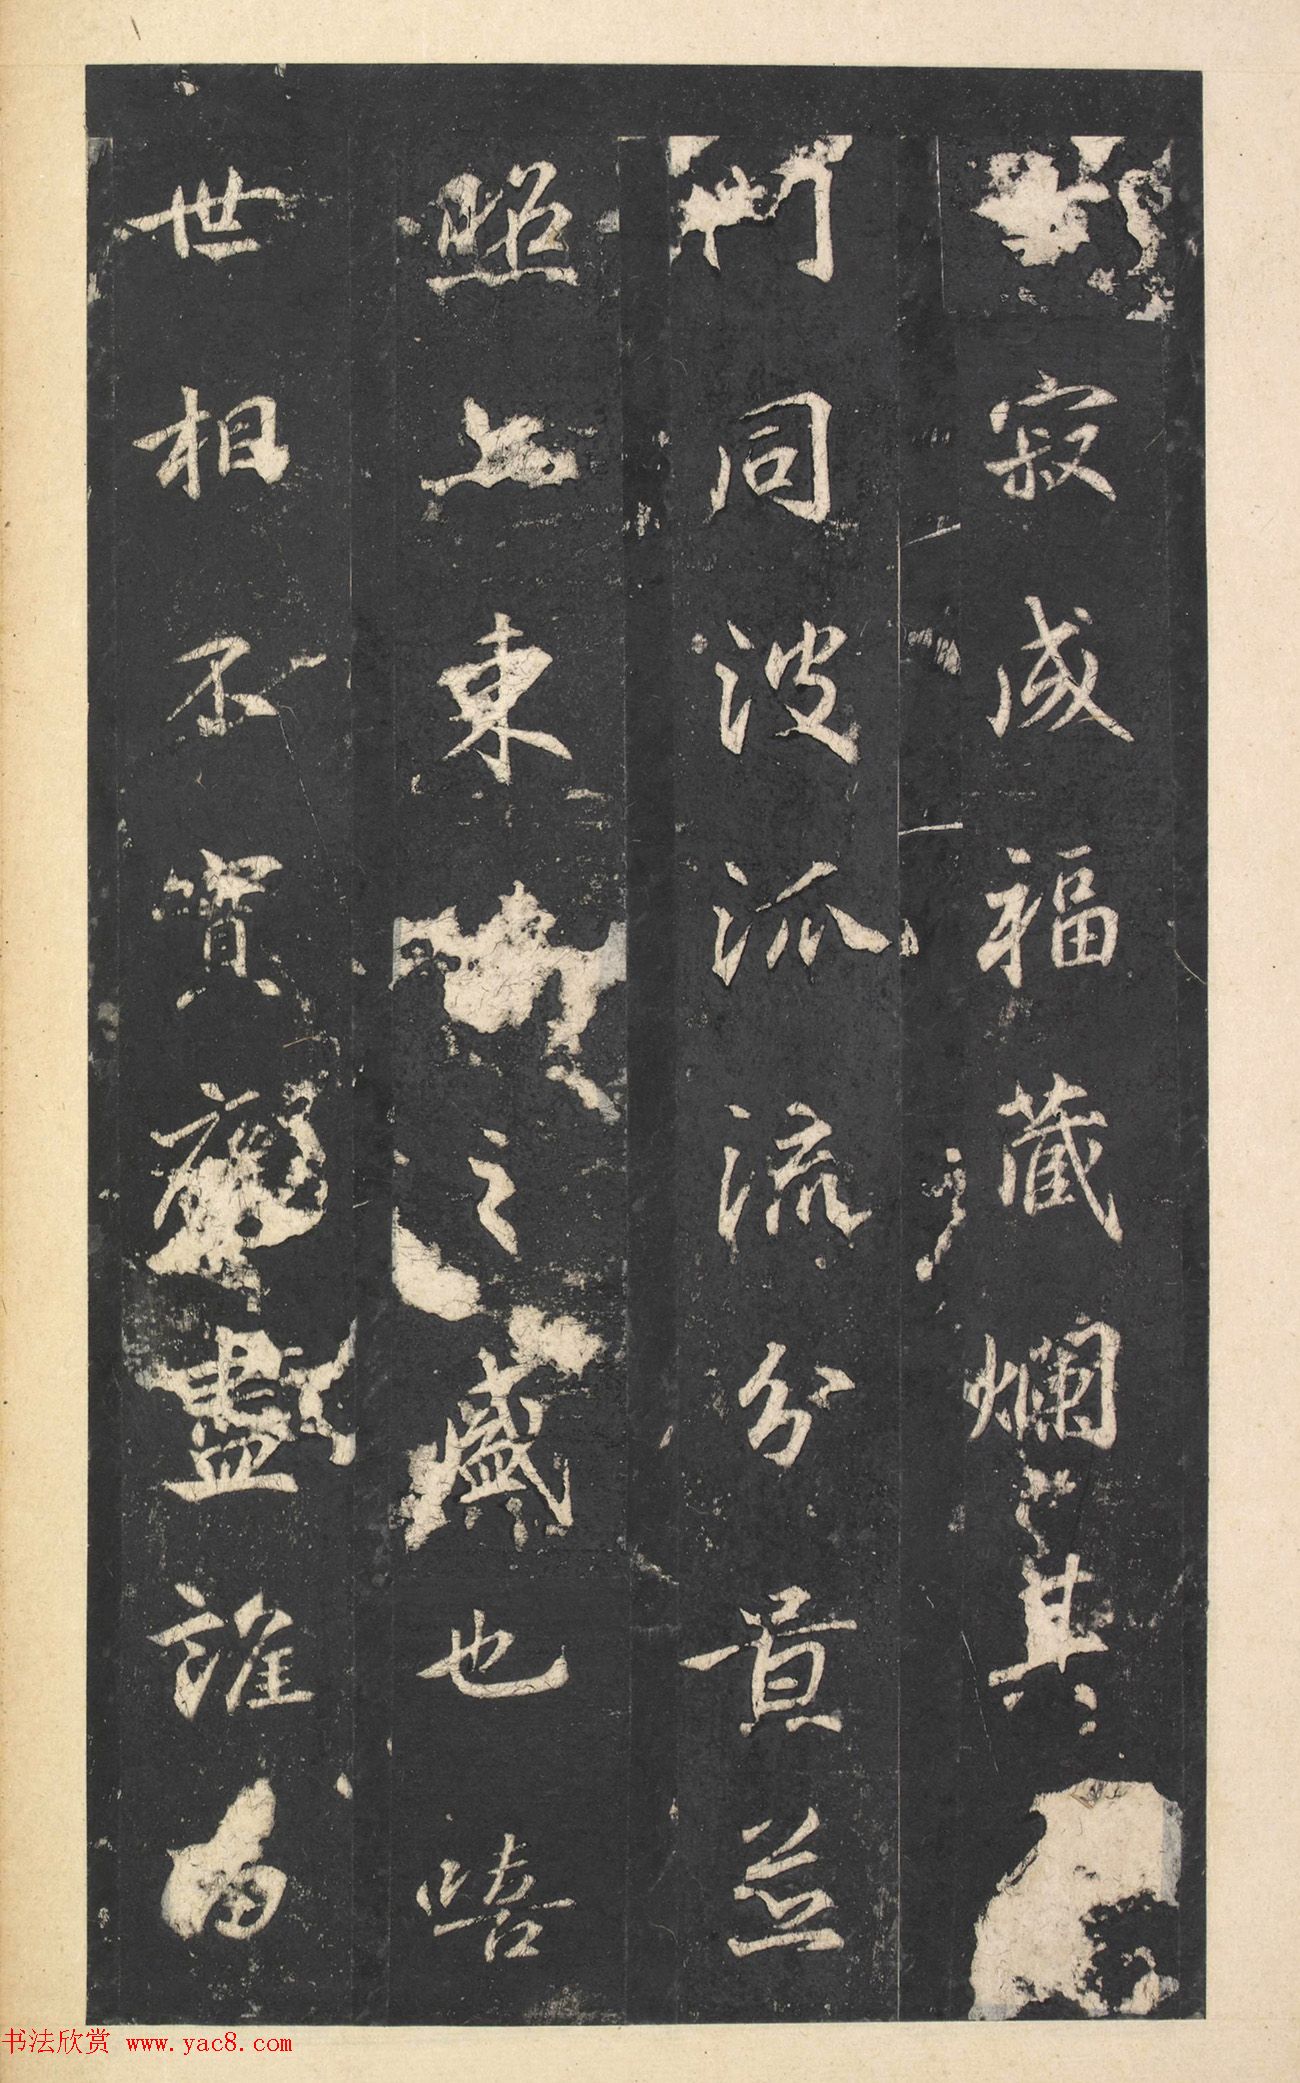 寂成福藏爛其
門同波泒流分景並
照上東之盛也嘻
世相不實盡誰留
书法欣赏 www.yac8.com